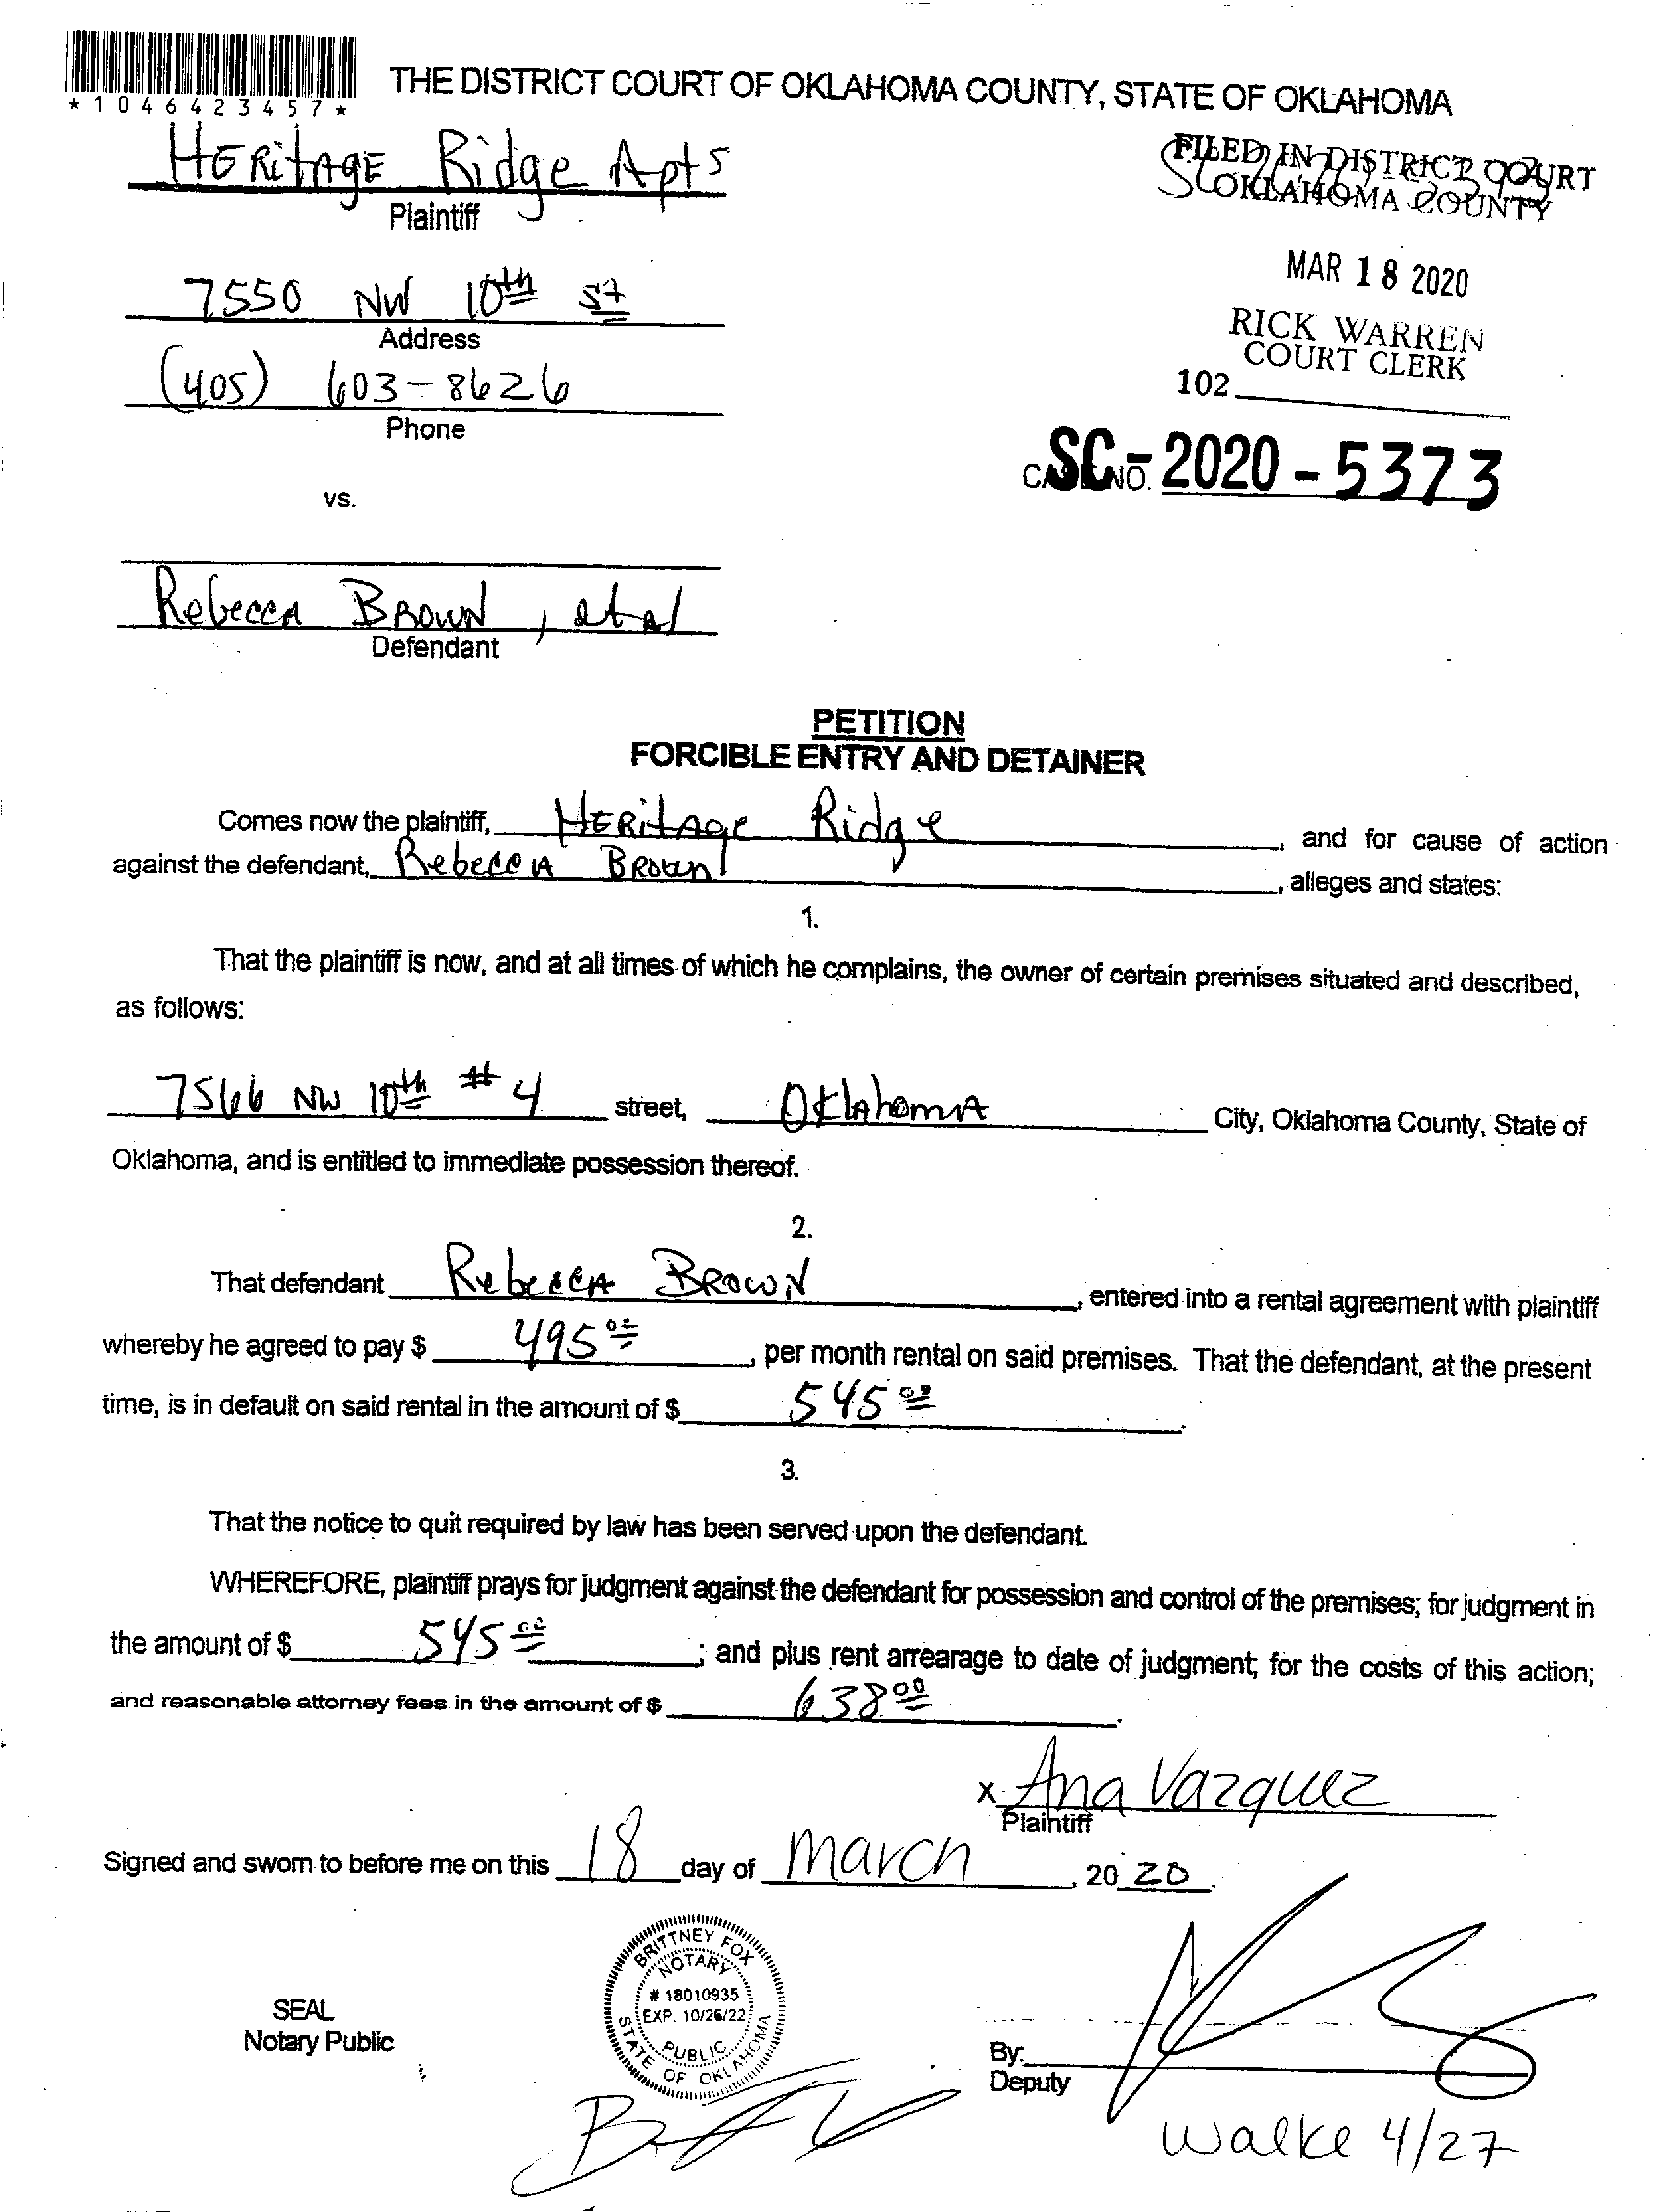 *1046423457*
THE DISTRICT COURT OF OKLAHOMA COUNTY, STATE OF OKLAHOMA
HERitAGE Ridge Apts
Plaintiff
FILED IN DISTRICT COURT
OKLAHOMA COUNTY
MAR 18 2020
RICK WARREN
COURT CLERK
102
7550 NW 10th St
Address
(405) 603-8626
Phone
CASE NO. SC-2020-5373
vs.
Rebecca Brown, et al
Defendant
PETITION
FORCIBLE ENTRY AND DETAINER
Comes now the plaintiff, HERitAGE Ridge, and for cause of action
against the defendant, Rebecca Brown, alleges and states:
1.
That the plaintiff is now, and at all times of which he complains, the owner of certain premises situated and described,
as follows:
7566 NW 10th #4 street, OklahomA City, Oklahoma County, State of
Oklahoma, and is entitled to immediate possession thereof.
2.
That defendant Rebecca Brown, entered into a rental agreement with plaintiff
whereby he agreed to pay $ 495 00, per month rental on said premises. That the defendant, at the present
time, is in default on said rental in the amount of $ 545 00.
3.
That the notice to quit required by law has been served upon the defendant.
WHEREFORE, plaintiff prays for judgment against the defendant for possession and control of the premises; for judgment in
the amount of $ 545 00; and plus rent arrearage to date of judgment; for the costs of this action;
and reasonable attorney fees in the amount of $ 638 00.
x Ana Vazquez
Plaintiff
Signed and sworn to before me on this 18 day of March, 20 20.
BRITTNEY FOX
NOTARY
# 18010935
EXP. 10/26/22
PUBLIC
STATE OF OKLAHOMA
SEAL
Notary Public
By:
Deputy
Walke 4/27